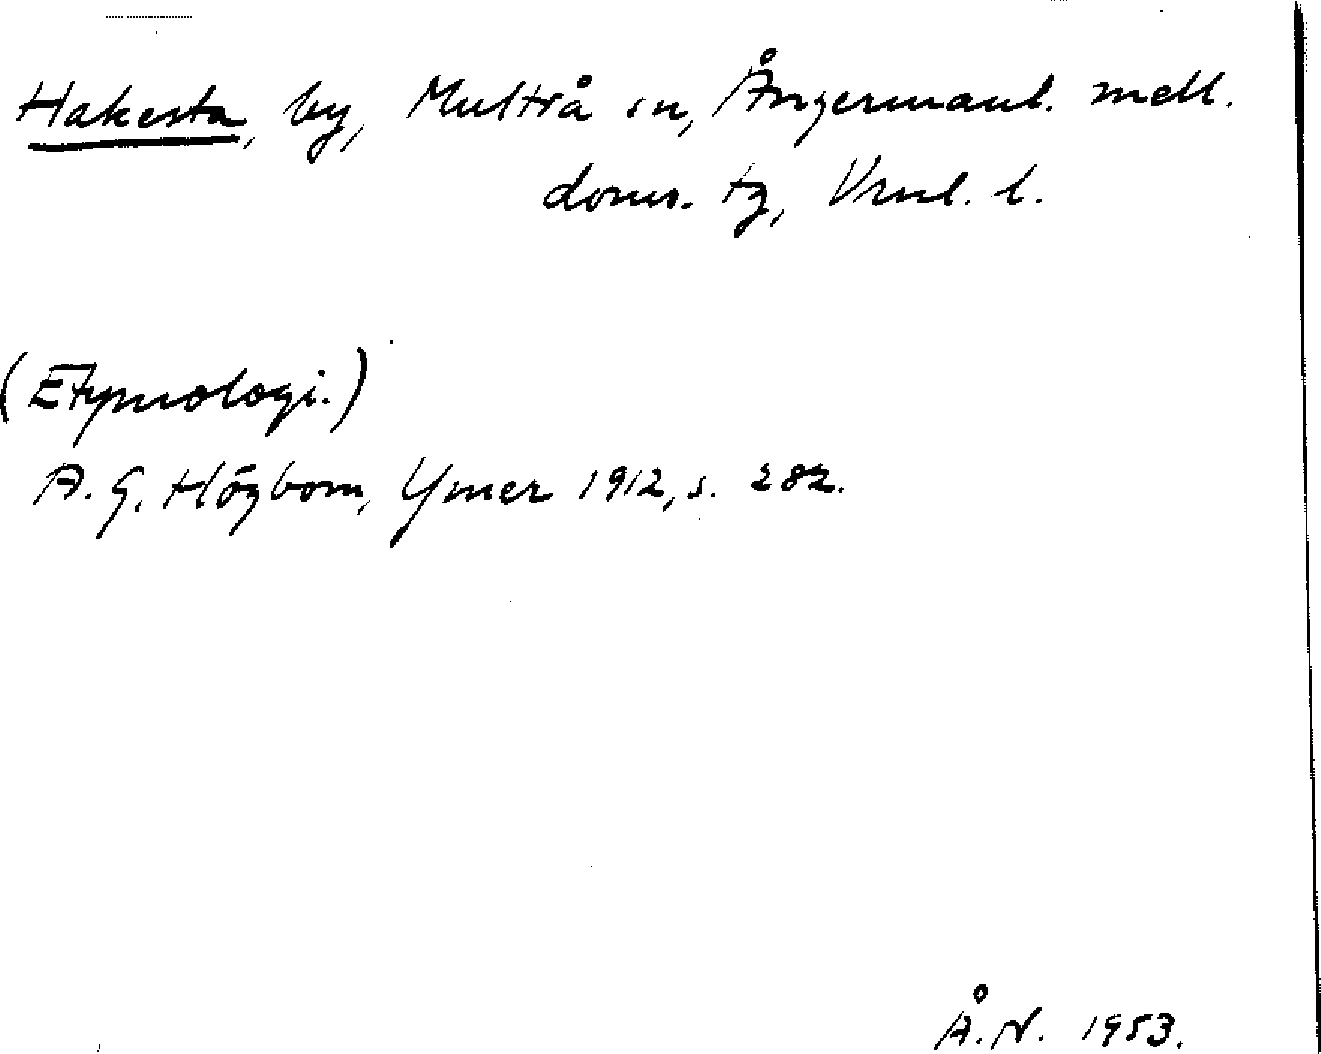 Hakesta, by, Multrå sn, Ångermanl. mell.
doms. tg, Vnl. l.
(Etymologi.)
A. G. Högbom, Ymer 1912, s. 282.
Å. N. 1953.